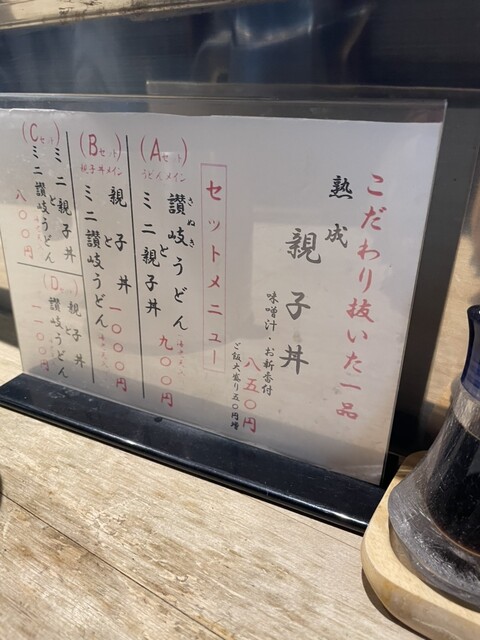 こだわり抜いた一品
熟成
親子丼
味噌汁・お新香付
八五〇円
ご飯大盛り五〇円増
セットメニュー
(Aセット)
うどんメイン
讃岐うどん
さぬき
と
ミニ親子丼
九〇〇円
(Bセット)
親子丼メイン
親子丼
と
ミニ讃岐うどん
一〇〇〇円
(Cセット)
ミニ親子丼
と
ミニ讃岐うどん
八〇〇円
(D
親子丼
と
讃岐うどん
一一〇〇円